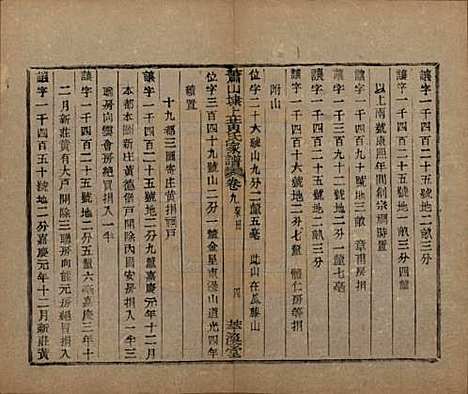 讓字一千四百二十五號地二畝三分
讓字一千四百二十五號地三分四釐
以上南號康熙年間創宗祠時置
讓字一千三百五十號地三畝 章甫房捐
讓字一千四百二十五號地一分一釐七毫
讓字一千四百二十五號地二分七釐 體仁房捐
附山
位字二十六號山九分二釐五毫 此山在瓜藤山
位字三百四十九號山二分一釐金星東塋山道光四年
蕭山埭上黃氏家譜 卷九 祭田 四
續置
十九都三圖寄庄黃捐疇戶
讓字一千四百二十五號地二分五釐 嘉慶元年十二月
本都本圖新庄黃德僚戶開除內國安房捐入一半三
聰房內興會房絕冒捐入一半
讓字一千四百二十五號地二分五釐六毫 嘉慶三年十
二月新莊黃有大戶開除三聰房啟元房絕冒捐入
讓字一千四百五十號地二分嘉慶元年十二月新莊黃